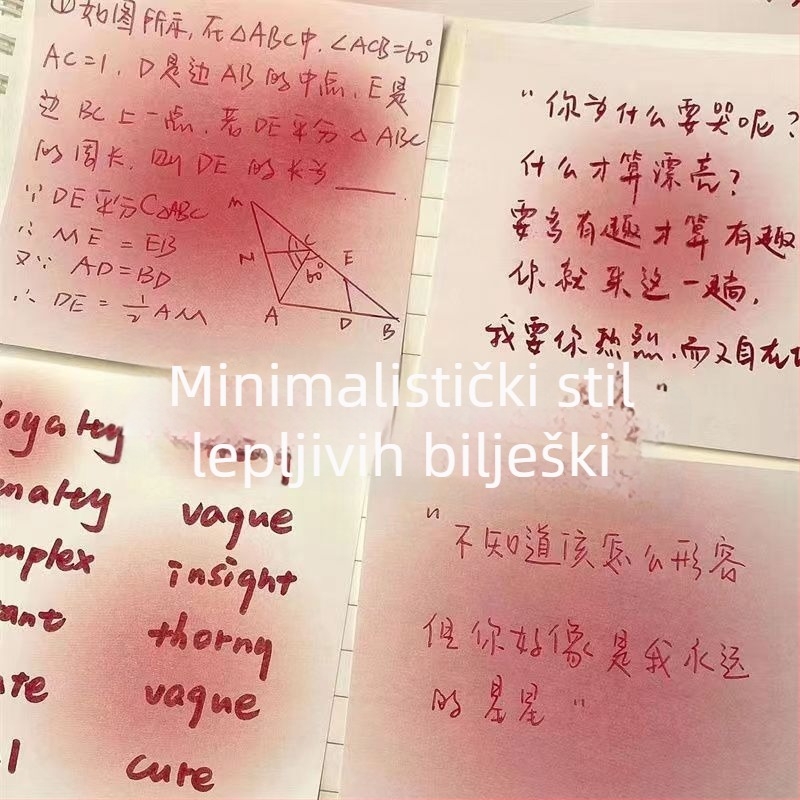 ①如图所示,在△ABC中,∠ACB=60°
AC=1,D是边AB的中点,E是
边BC上一点,若DE平分△ABC
的周长,则DE的长为____
∵DE平分C△ABC
∴ME=EB
又∵AD=BD
∴DE=½AM
M
N
C
60°
E
A
D
B
"你为什么要哭呢?
什么才算漂亮?
要多有趣才算有趣
你就来这一趟,
我要你热烈,而又自在
"
Minimalistički stil
lepljivih bilješki
vague
insight
thorny
vague
cure
"不知道该怎么形容
但你好像是我永远
的星星"